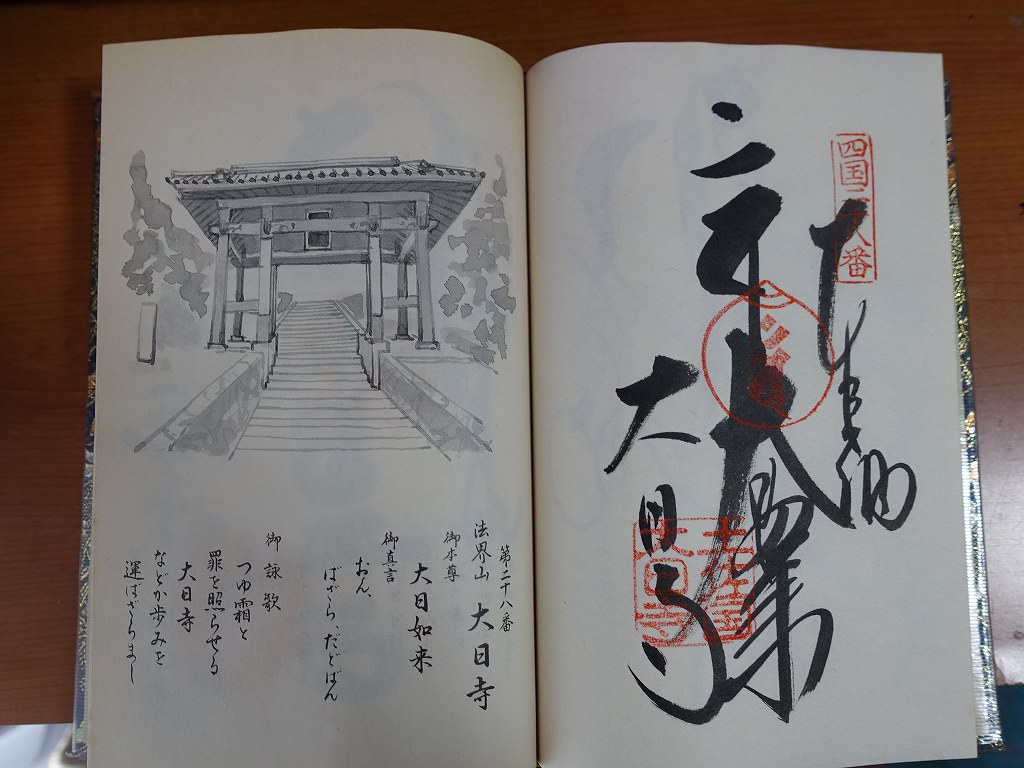 四国二十八番
奉納
大日如来
大日寺
第二十八番
法界山 大日寺
御本尊
大日如来
御真言
おん、
ばざら、だどばん
御詠歌
つゆ霜と
罪を照らせる
大日寺
などか歩みを
運ばざりまし